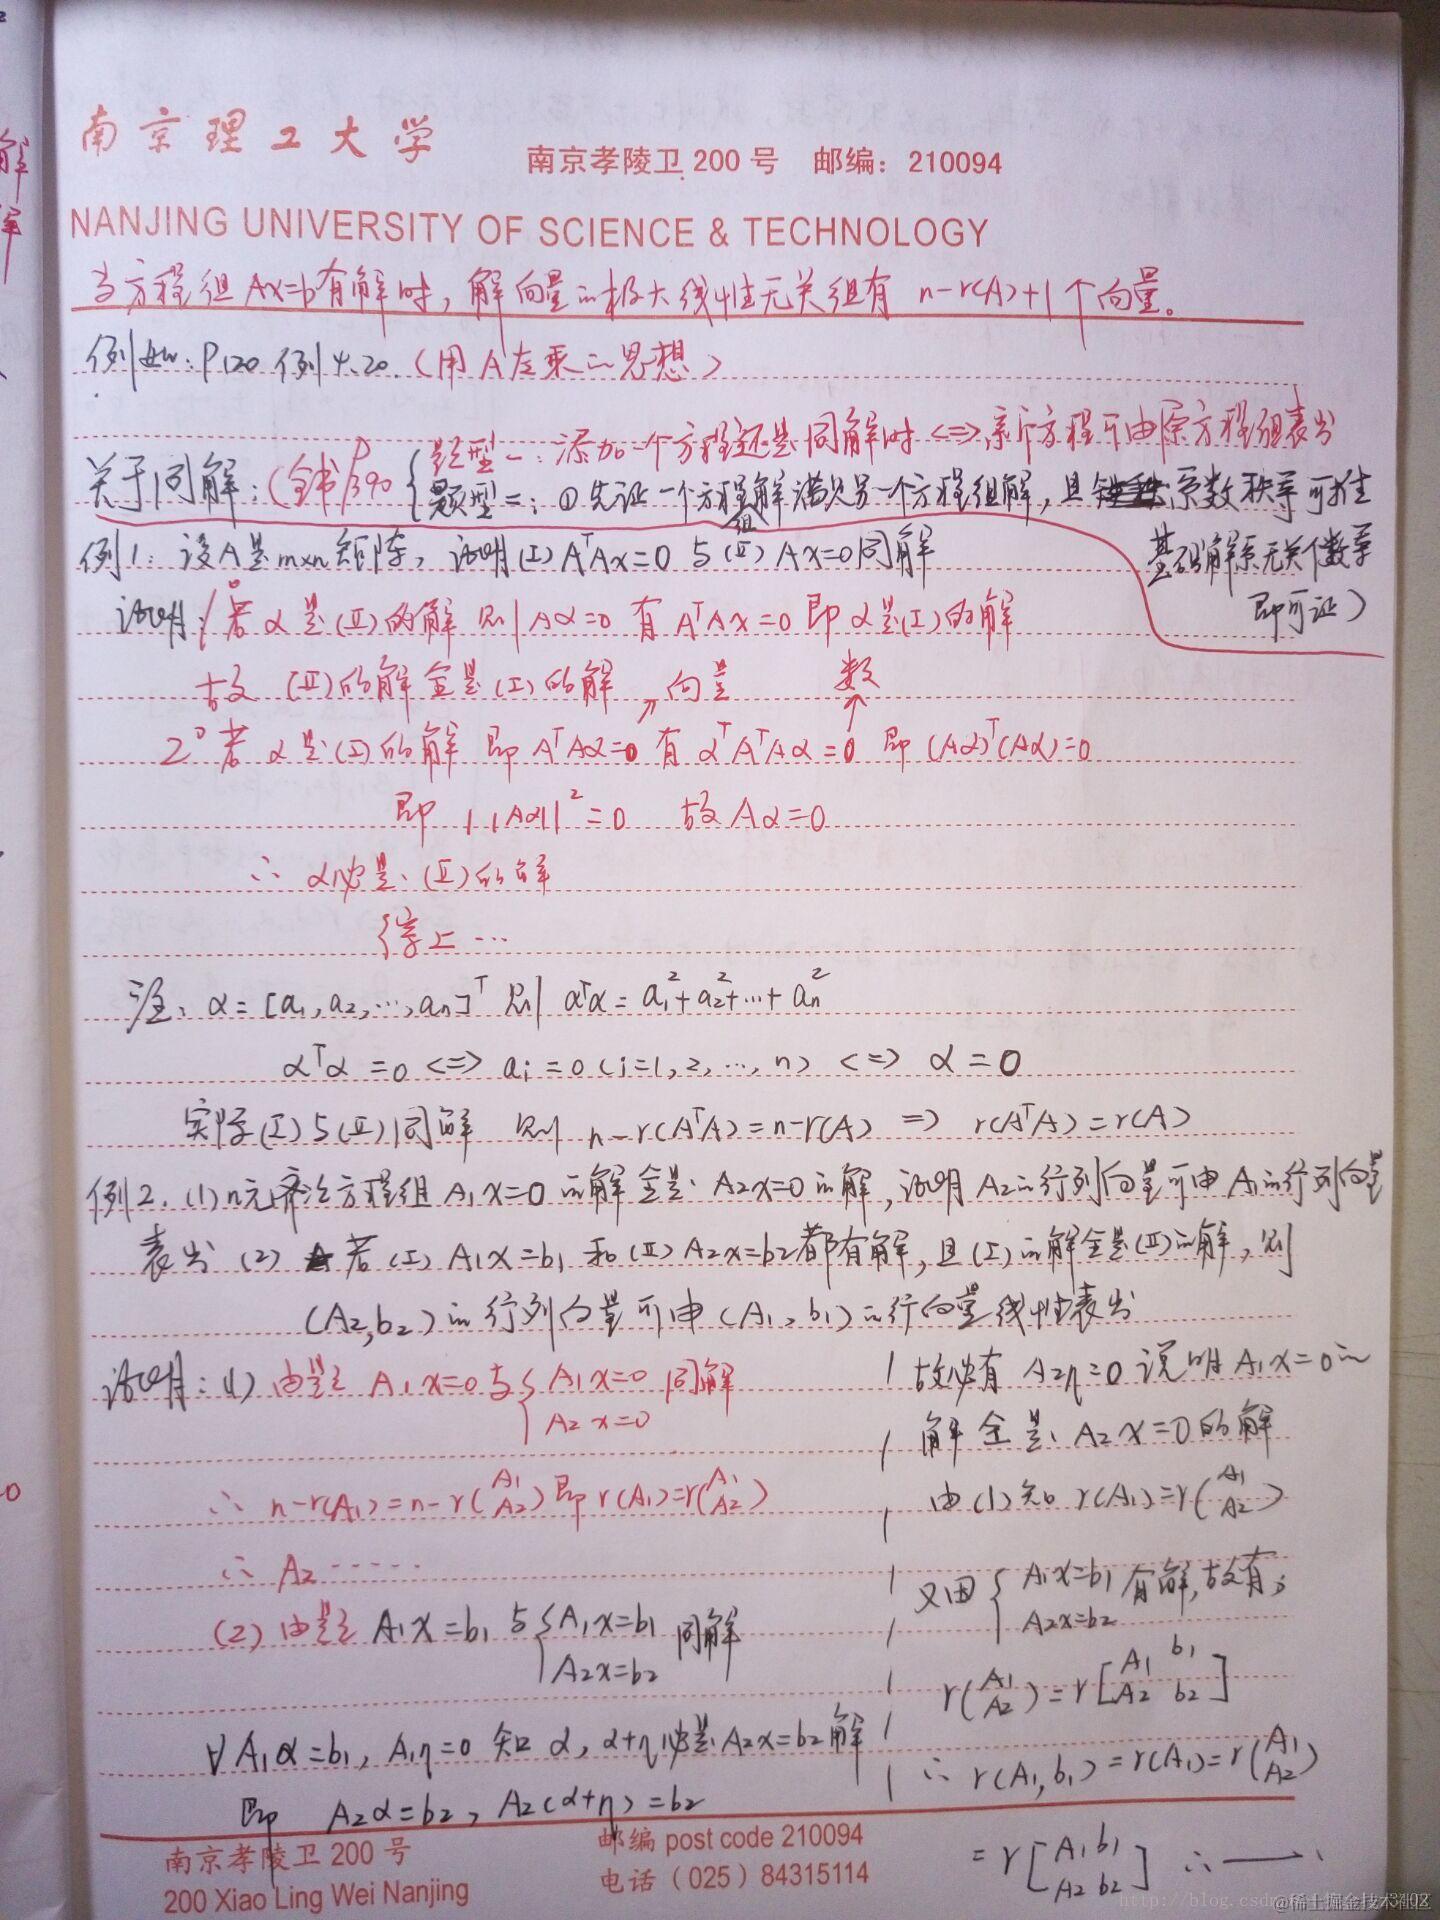 南京理工大学
南京孝陵卫 200 号 邮编：210094
NANJING UNIVERSITY OF SCIENCE & TECHNOLOGY
当方程组 Ax=b有解时，解向量的极大线性无关组有 n-r(A)+1个向量。
例如：P120 例4.20.（用A左乘的思想）
关于同解：（全书P390 { 题型一：添加一个方程还是同解时 <=> 新方程可由原方程组表出
题型二：① 先证一个方程组解满足另一个方程组解，且 系数秩等可推
基础解系无关个数等
即可证）
例1：设A是m×n矩阵，证明(I) AᵀAx=0 与(II) Ax=0同解
证明：1° 若 α 是(II)的解 则 Aα=0 有 AᵀAx=0 即 α是(I)的解
故 (II)的解全是(I)的解 向量 数
2° 若 α 是(I)的解 即 AᵀAα=0 有 αᵀAᵀAα=0 即 (Aα)ᵀ(Aα)=0
即 ||Aα||²=0 故 Aα=0
∴ α必是(II)的解
综上…
注：α=[a₁,a₂,…,aₙ]ᵀ 则 αᵀα=a₁²+a₂²+…+aₙ²
αᵀα=0 <=> aᵢ=0 (i=1,2,…,n) <=> α=0
实际(I)与(II)同解 则 n-r(AᵀA)=n-r(A) => r(AᵀA)=r(A)
例2.(1) n元齐次方程组 A₁x=0 的解全是 A₂x=0 的解，证明 A₂的行列向量可由 A₁的行列向量
表出 (2) 若(I) A₁x=b₁ 和(II) A₂x=b₂都有解，且(I)的解全是(II)的解，则
(A₂,b₂)的行列向量可由(A₁,b₁)的行向量线性表出
证明：(1) 由题 A₁x=0 与 { A₁x=0 同解
A₂x=0
∴ n-r(A₁)=n-r(A₁ A₂) 即 r(A₁)=r(A₁ A₂)
∴ A₂ ……
(2) 由题 A₁x=b₁ 与 { A₁x=b₁ 同解
A₂x=b₂
∀ A₁α=b₁，A₁η=0 知 α，α+η必是A₂x=b₂解
即 A₂α=b₂，A₂(α+η)=b₂
故必有 A₂η=0 说明 A₁x=0的
解全是 A₂x=0的解
由(1)知 r(A₁)=r(A₁ A₂)
又因 { A₁x=b₁ 有解，故有：
A₂x=b₂
r(A₁ A₂)=r[A₁ b₁ A₂ b₂]
∴ r(A₁,b₁)=r(A₁)=r(A₁ A₂)
=r[A₁ b₁ A₂ b₂] ∴ —
南京孝陵卫 200 号
200 Xiao Ling Wei Nanjing
邮编 post code 210094
电话（025）84315114
@稀土掘金技术社区